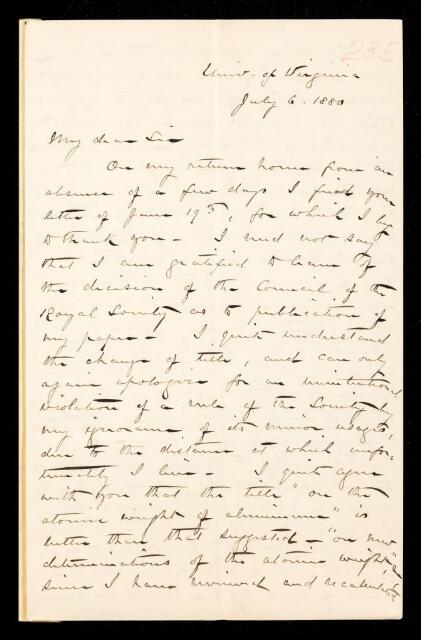 235
Univ. of Virginia
July 6. 1880
My dear Sir
On my return home from an
absence of a few days I find your
letter of June 19th, for which I beg
to thank you – I need not say
that I am gratified to learn of
the decision of the Council of the
Royal Society as to publication of
my paper – I quite understand
the change of title, and can only
again apologise for an unintentional
violation of a rule of the Society by
my ignorance of its minor usages,
due to the distance at which unfor-
tunately I live – I quite agree
with you that the title "on the
atomic weight of aluminium" is
better than that suggested – "on new
determinations of the atomic weight, &c"
since I have reviewed and recalculated